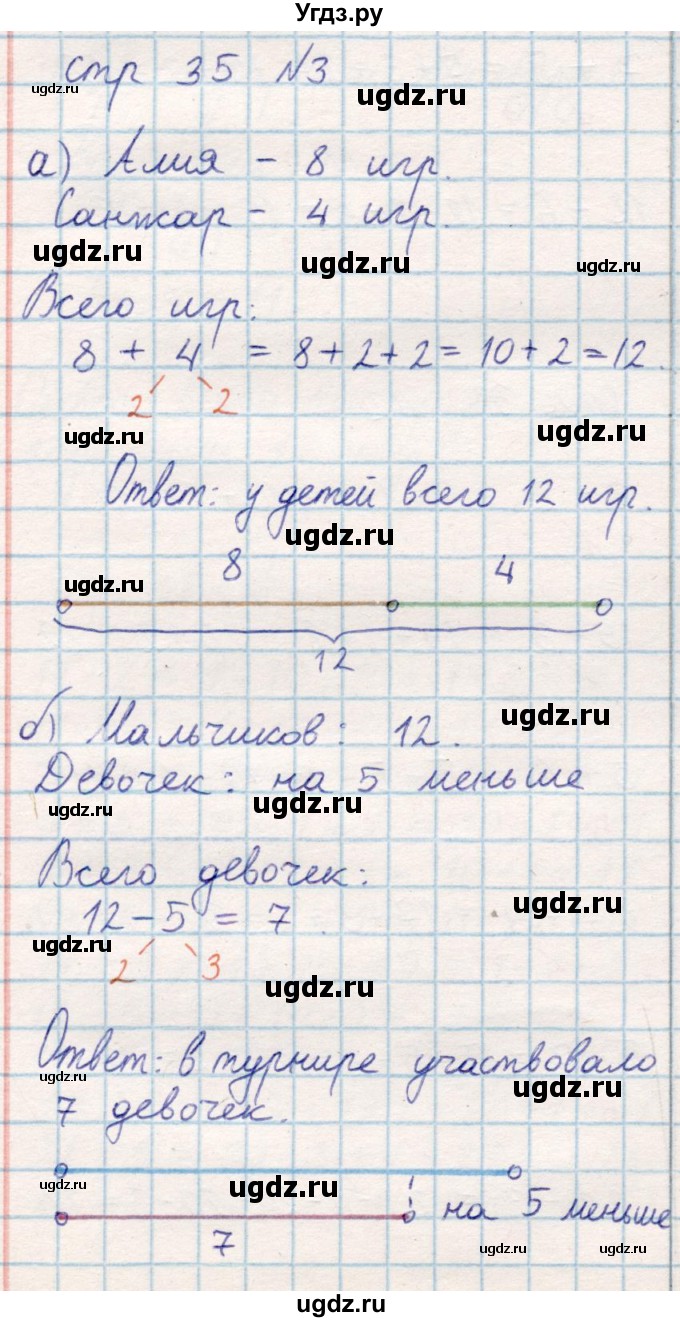 Угдз.ру
стр 35 №3
ugdz.ru
ugdz.ru
а) Алия - 8 игр.
Санжар - 4 игр.
ugdz.ru
ugdz.ru
ugdz.ru
Всего игр:
8 + 4 = 8 + 2 + 2 = 10 + 2 = 12.
2 2
ugdz.ru
ugdz.ru
Ответ: у детей всего 12 игр.
ugdz.ru
8 4
ugdz.ru
12
б) Мальчиков: 12.
ugdz.ru
Девочек: на 5 меньше
ugdz.ru
ugdz.ru
Всего девочек:
12 - 5 = 7.
ugdz.ru
ugdz.ru
2 3
ugdz.ru
Ответ: в турнире участвовало
ugdz.ru
ugdz.ru
7 девочек.
ugdz.ru
ugdz.ru
на 5 меньше
7
ugdz.ru
ugdz.ru
ugdz.ru